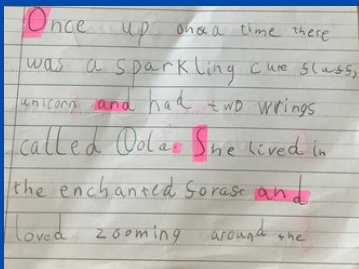 Once up onaa time there
was a sparkling cute slass,
unicorn and had two wrings
called Oola. She lived in
the enchanted forast and
loved zooming around the